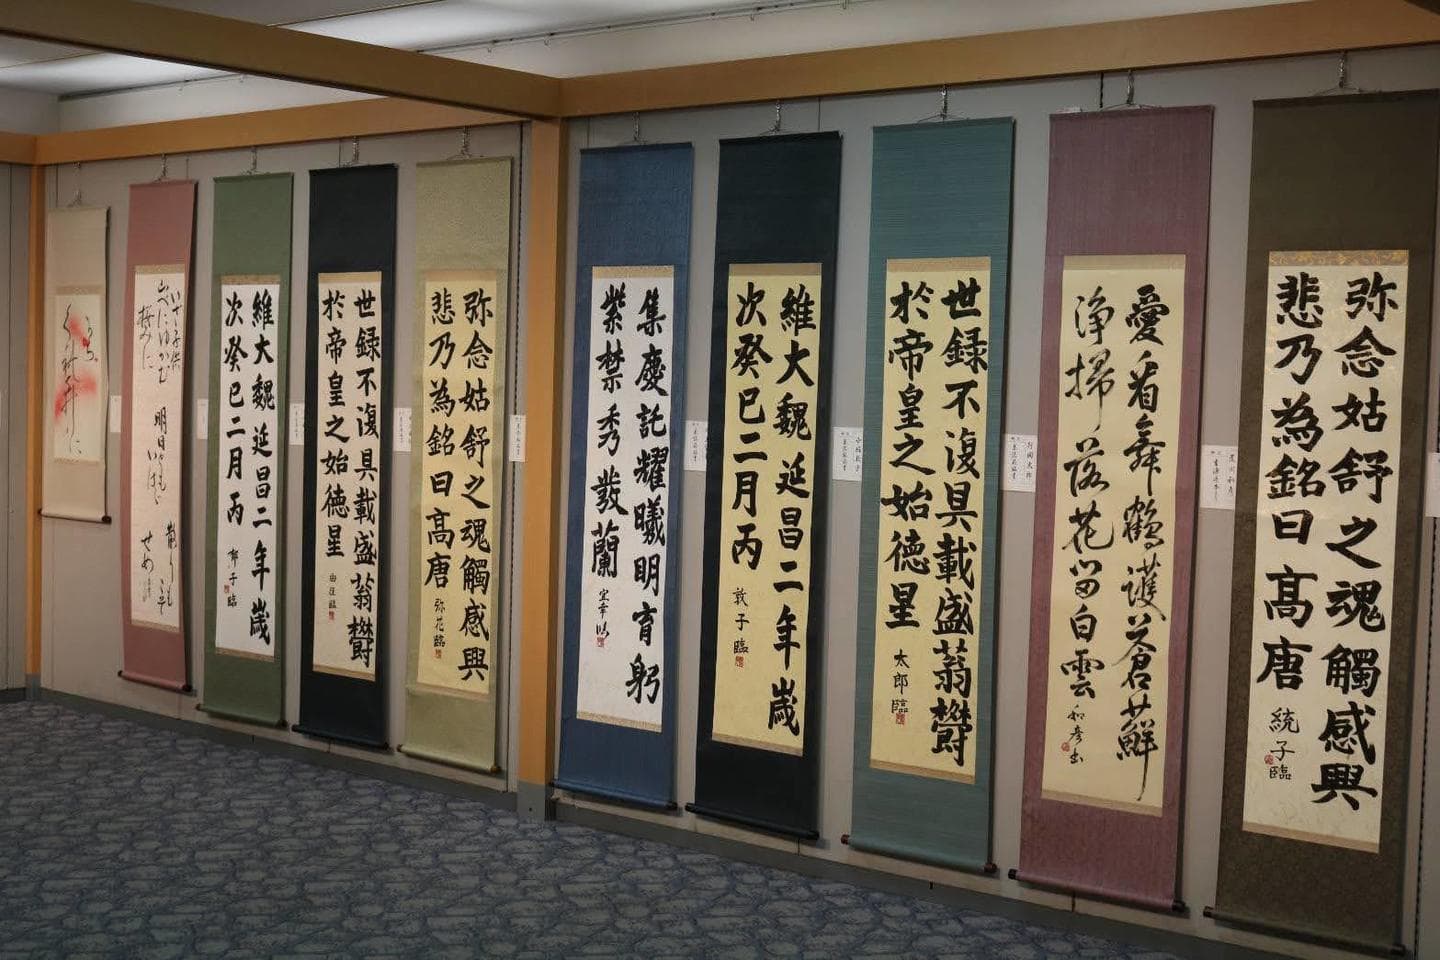 弥念姑舒之魂觸感興
悲乃為銘曰髙唐
統子臨
愛看舞鶴護蒼蘚
浄掃落花留白雲
和彦書
世録不復具載盛蓊欝
於帝皇之始徳星
太郎臨
維大魏延昌二年歳
次癸巳二月丙
敦子臨
集慶託耀曦明育躬
紫禁秀發蘭
弥念姑舒之魂觸感興
悲乃為銘曰髙唐
弥花臨
世録不復具載盛蓊欝
於帝皇之始徳星
維大魏延昌二年歳
次癸巳二月丙
いざ子供
山べにゆかむ
桜みに
明日
散りも
せめ